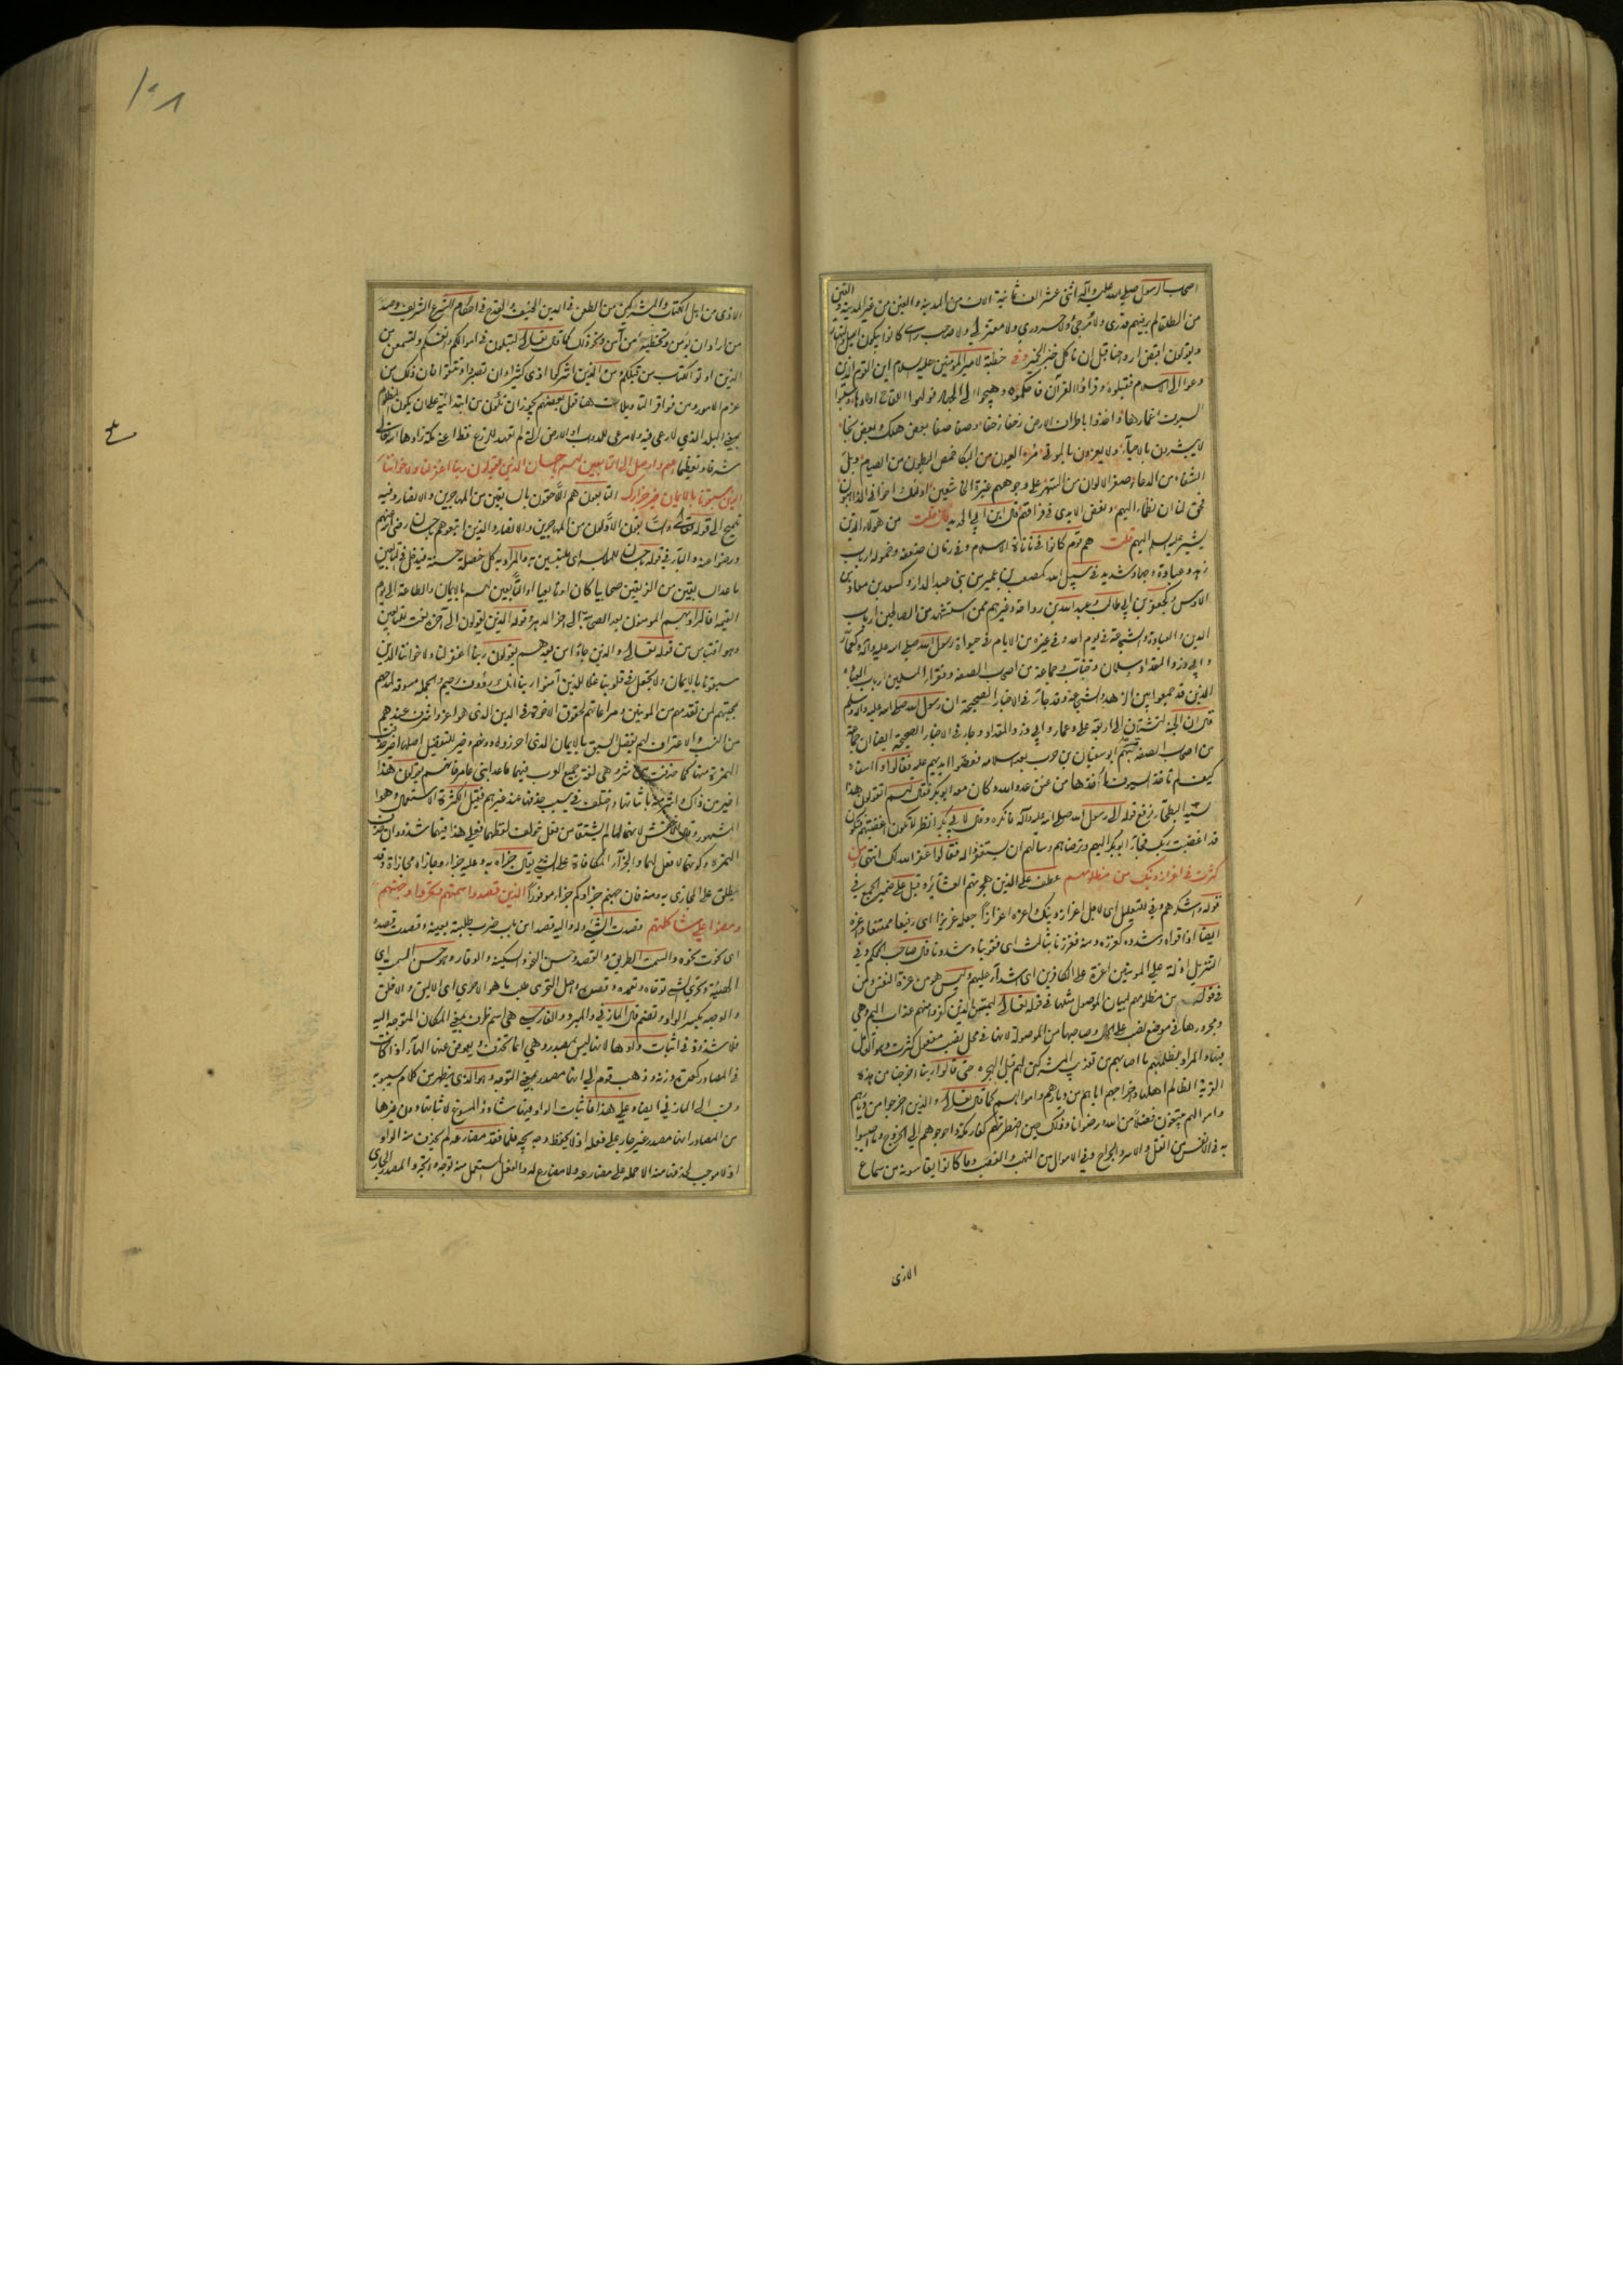 اصحاب الرسول صلى الله عليه وآله اثنى عشر الف ثمانية الاف من المدينة والفين من غير المدينة والفين
من الطلقاء لم ير فيهم قدرى ولا مرجئ ولا حرورى ولا معتزلى ولا صاحب راى كانوا يبكون الليل والنهار
ويقولون اقبض ارواحنا قبل ان ناكل خبز الخمير وفى خطبة لامير المؤمنين عليه السلام اين القوم الذين
دعوا الى الاسلام فقبلوه وقراؤا القرآن فاحكموه وهيجوا الى الجهاد فولهوا اللقاح اولادها وسلبوا
السيوف اغمادها واخذوا باطراف الارض زحفا زحفا وصفا صفا بعض هلك وبعض نجا
لا يبشرون بالاحياء ولا يعزون بالموتى مره العيون من البكا خمص البطون من الصيام ذبل
الشفاه من الدعاء صفر الالوان من السهر على وجوههم غبرة الخاشعين اولئك اخوانى الذاهبون
فحق لنا ان نظمأ اليهم ونعض الايدى على فراقهم قال ابن ابى الحديد فان قلت من هؤلاء الذين
يشير عليه السلام اليهم قلت هم قوم كانوا فى نأنأة الاسلام وفى زمان ضعفه وخموله ارباب
زهد وعبادة وجهاد شديد فى سبيل الله كمصعب بن عمير من بنى عبد الدار وكسعد بن معاذ من
الاوس وكجعفر بن ابى طالب وعبد الله بن رواحة وغيرهم ممن استشهد من الصالحين ارباب
الدين والعبادة والشجاعة فى يوم احد وفى غيره من الايام فى حياة رسول الله صلى الله عليه وآله وكعمار
وابى ذر والمقداد وسلمان وخباب وجماعة من اصحاب الصفة وفقراء المسلمين ارباب العبادة
الذين قد جمعوا بين الزهد والشجاعة وقد جاء فى الاخبار الصحيحة ان رسول الله صلى الله عليه وآله وسلم
قال ان الجنة لتشتاق الى اربعة على وعمار وابى ذر والمقداد وجاء فى الاخبار الصحيحة ايضا ان جماعة
من اصحاب الصفة مر بهم ابو سفيان بن حرب بعد اسلامه فعضوا ايديهم عليه فقالوا وا اسفاه
كيف لم تاخذ السيوف مأخذها من عنق عدو الله وكان معه ابو بكر فقال لهم اتقولون هذا
لسيد البطحاء فرفع قوله الى رسول الله صلى الله عليه وآله فانكره وقال لابى بكر انظر لا تكون اغضبتهم فتكون
قد اغضبت ربك فجاء ابو بكر اليهم وترضاهم وسالهم ان يستغفروا له فقالوا غفر الله لك انتهى ومن
كثرت فى اعزاز دينك من مظلومهم عطف على الذين هجرتهم العشائر وقيل على ضمير الجمع فى
قوله واشكرهم وفى للتعليل اى لاجل اعزاز دينك واعزه اعزازا جعله عزيزا اى رفيعا ممتنعا واعزه
ايضا اذا قواه وشدده كعززه ومنه فعززنا بثالث اى فقوينا وشددنا قال صاحب المحكم وفى
التنزيل اذلة على المؤمنين اعزة على الكافرين اى اشداء عليهم وليس هو من عزة النفس ومن
فى قوله من مظلومهم لبيان الموصول مثلها فى قوله تعالى ليمسن الذين كفروا منهم عذاب اليم وهى
ومجرورها فى موضع نصب على الحال وصاحبها من الموصولة لانها فى محل نصب مفعول كثرت وهو العامل
فيها والمراد بظلمهم ما اصابهم من تعذيب المشركين لهم قبل الهجرة حتى قالوا ربنا اخرجنا من هذه
القرية الظالم اهلها واخراجهم اياهم من ديارهم واموالهم كما قال تعالى والذين اخرجوا من ديارهم
واموالهم يبتغون فضلا من الله ورضوانا وذلك حين اضطرتهم كفار مكة واحوجوهم الى الخروج وما اصيبوا
به فى الانفس من القتل والاسر والجراح وفى الاموال من النهب والغصب وما كانوا يقاسونه من سماع
الاذى
١٠١
الاذى من اهل الكتاب والمشركين من الطعن فى الدين الحنيف والقدح فى احكام الشرع الشريف وصد
من اراد ان يؤمن وتخطئة من آمن ونحو ذلك كما قال تعالى لتبلون فى اموالكم وانفسكم ولتسمعن من
الذين اوتوا الكتاب من قبلكم ومن الذين اشركوا اذى كثيرا وان تصبروا وتتقوا فان ذلك من
عزم الامور ومن نوادر التاويلات هنا قول بعضهم يجوز ان تكون من ابتدائية على ان يكون المظلوم
بمعنى البلد الذى لا رعى فيه ولا مرعى للدواب او الارض التى لم تعهد للزرع قط اعنى مكة زادها الله تعالى
شرفا وتعظيما اللهم واوصل الى التابعين لهم باحسان الذين يقولون ربنا اغفر لنا ولاخواننا
الذين سبقونا بالايمان خير جزائك التابعون هم اللاحقون بالسابقين من المهاجرين والانصار وفيه
تلميح الى قوله تعالى والسابقون الاولون من المهاجرين والانصار والذين اتبعوهم باحسان رضى الله عنهم
ورضوا عنه والباء فى قوله باحسان للملابسة اى متلبسين به والمراد به كل خصلة حسنة فيدخل فى التابعين
ما عدا السابقين من الفريقين صحابيا كان او تابعيا او التابعين لهم بالايمان والطاعة الى يوم
القيمة فالمراد بهم المؤمنون بعد الصحابة الى آخر الدهر وقوله الذين يقولون الى آخره نعت للتابعين
وهو اقتباس من قوله تعالى والذين جاؤا من بعدهم يقولون ربنا اغفر لنا ولاخواننا الذين
سبقونا بالايمان ولا تجعل فى قلوبنا غلا للذين آمنوا ربنا انك رؤف رحيم والجملة مسوقة لمدحهم
بمحبتهم لمن تقدمهم من المؤمنين ومراعاتهم لحقوق الاخوة فى الدين الذى هو اعز واشرف عندهم
من النسب والاعتراف لهم بفضل السبق بالايمان الذى احرزوه دونهم وخير للتفضيل اصله اخير حذفت
الهمزة منها كما حذفت من شر وهى لغة جميع العرب فيهما ما عدا بنى عامر فانهم يقولون هذا
اخير من ذاك واشر منه باثباتها واختلف فى سبب حذفها عند غيرهم فقيل لكثرة الاستعمال وهو
المشهور وقال الاخفش لانهما لما لم يشتقا من فعل خولف لفظهما فعلى هذا فيهما شذوذان حذف
الهمزة وكونهما لا فعل لهما والجزاء المكافاة على الشئ يقال جزاه به وعليه جزاء وجازاه مجازاة وقد
يطلق على المجازى به ومنه فان جهنم جزاؤكم جزاء موفورا الذين قصدوا سمتهم وتحروا وجهتهم
ومضوا على شاكلتهم قصدت الشئ وله واليه قصدا من باب ضرب طلبته بعينه وقصدت قصده
اى نحوت نحوه والسمت الطريق والقصد وحسن النحو والسكينة والوقار وهو حسن السمت اى
الهيئة وتحرى الشئ توخاه وتعمده وقصده واصل التحرى طلب ما هو الاحرى اى الاليق والاخلق
والوجهة بكسر الواو وتضم قال المازنى والمبرد والفارسى هى اسم ظرف بمعنى المكان المتوجه اليه
فلا شذوذ فى اثبات واوها لانها ليس بمصدر وهى انما تحذف ويعوض عنها الهاء اذا كانت
فى المصادر كعدة وزنة وذهب قوم الى انها مصدر بمعنى التوجه وهو الذى يظهر من كلام سيبويه
ونسب الى المازنى ايضا وعلى هذا فاثبات الواو فيها شاذ والمسوغ لاثباتها دون غيرها
من المصادر انها مصدر غير جار على فعله اذ لا يحفظ وجه يجه فلما فقد مضارعه لم يحذف منه الواو
اذ لا موجب لحذفها منه الا حمله على مضارعه ولا مضارع له والفعل المستعمل منه توجه واتجه والمصدر الجارى